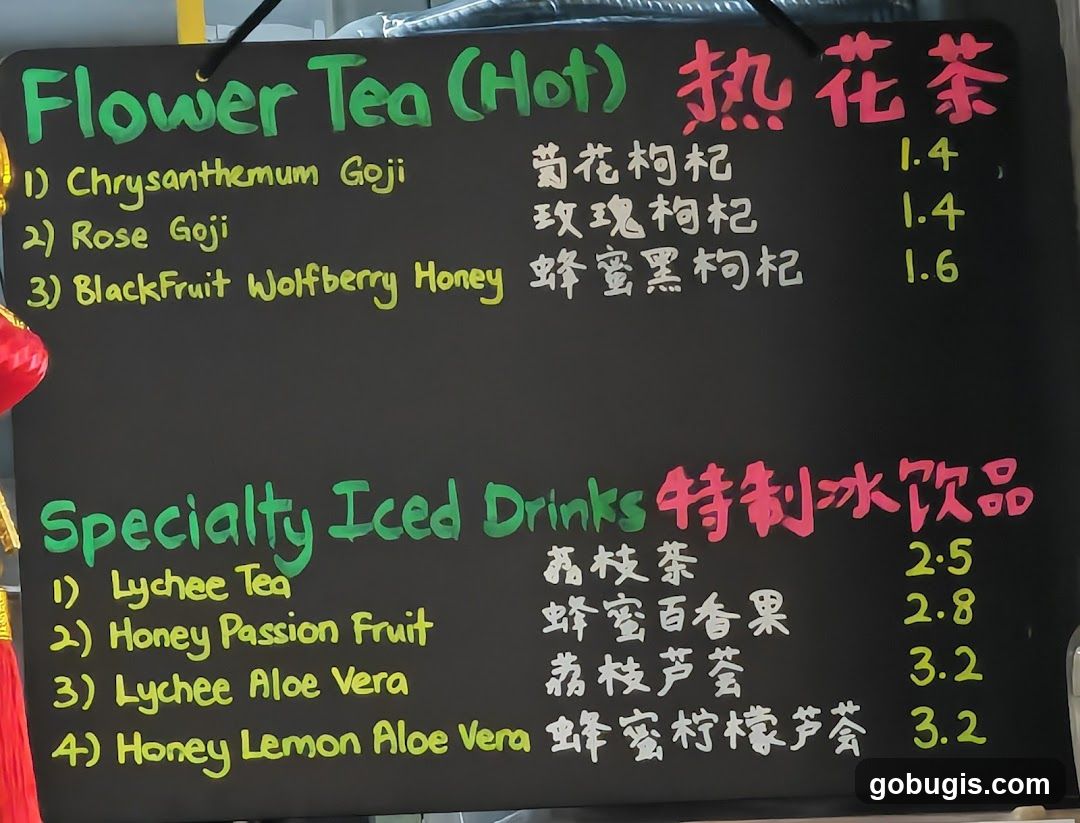 Flower Tea (Hot) 热花茶
1) Chrysanthemum Goji 菊花枸杞 1.4
2) Rose Goji 玫瑰枸杞 1.4
3) BlackFruit Wolfberry Honey 蜂蜜黑枸杞 1.6
Specialty Iced Drinks 特制冰饮品
1) Lychee Tea 荔枝茶 2.5
2) Honey Passion Fruit 蜂蜜百香果 2.8
3) Lychee Aloe Vera 荔枝芦荟 3.2
4) Honey Lemon Aloe Vera 蜂蜜柠檬芦荟 3.2
gobugis.com